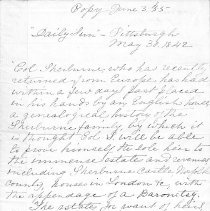 Copy June 3, 85
"Daily Sun" - Pittsburgh
May 30 1842
"Col. Sherburne, who has recently
returned from Europe has had
within a few days past placed
in his hands by an English
a genealogical history of the
Sherburne family by which it
is thought Col S will be able
to prove himself the sole heir to
the immense estate and revenue
including Sherburne Castle
County, houses in London &c with
the appendage of a Baronetcy.
The estate, for want of heirs